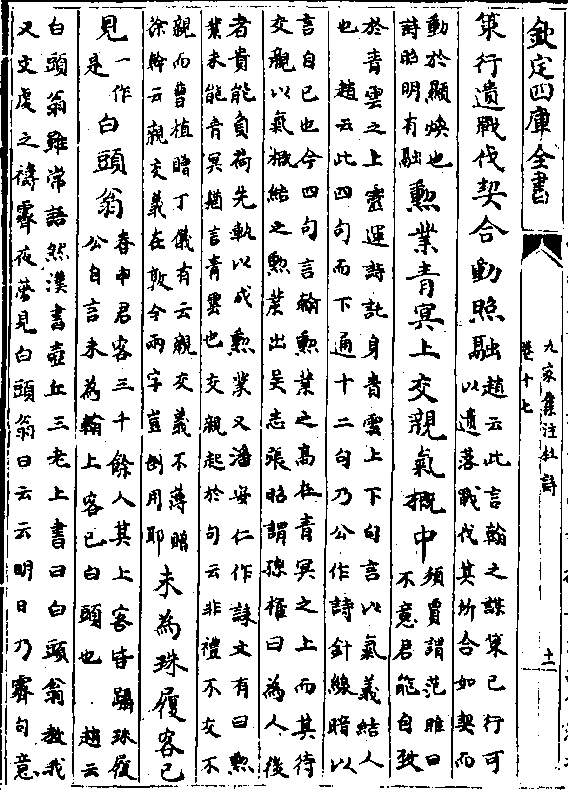 欽定四庫全書
九家集注杜詩
卷十七
十一
策行遺戰伐契合動照融
趙云此言翰之謀策已行可
以遺落戰伐其所合如契而
動於顯煥也
詩昭明有融
勲業青冥上交親氣概中
須賈謂范雎曰
不意君能自致
於青雲之上靈運詩託身青雲上下句言以氣義結人
也 趙云此四句而下通十二句乃公作詩針線暗以
言自已也今四句言翰勲業之高在青冥之上而其待
交親以氣概結之勲業出吳志張昭謂孫權曰為人後
者貴能負荷先軌以成勲業又潘安仁作誄文有曰勲
業未能青冥猶言青雲也交親起於句云非禮不交不
親而曹植贈丁儀有云親交義不薄贈
徐幹云親交義在敦今兩字豈倒用耶
未為珠履客已
見
一作
是
白頭翁
春申君客三千餘人其上客皆躡珠履
公自言未為翰上客已白頭也 趙云
白頭翁雖常語然漢書壺丘三老上書曰白頭翁教我
又文虔之禱霽夜夢見白頭翁曰云云明日乃霽句意